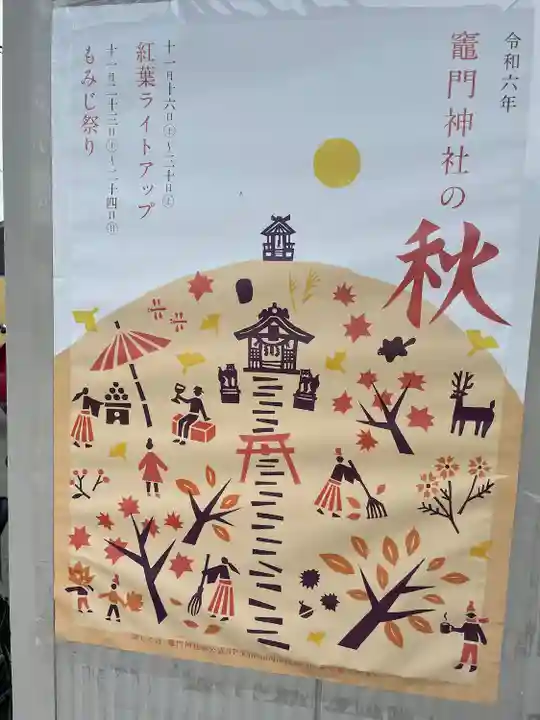 令和六年
竈門神社の
秋
十一月十六日㊏〜三十日㊏
紅葉ライトアップ
十一月二十三日㊏〜二十四日㊐
もみじ祭り